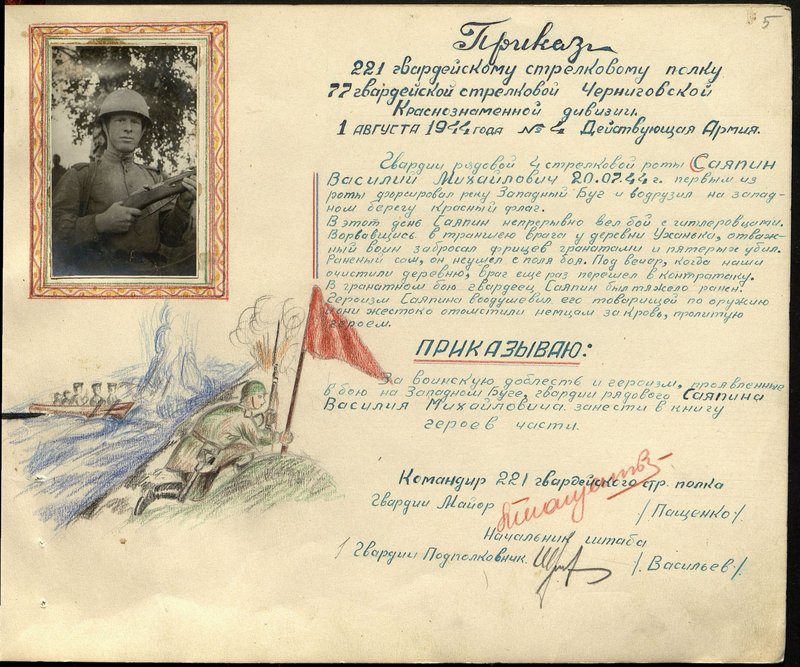 5
Приказ
221 гвардейскому стрелковому полку
77 гвардейской стрелковой Черниговской
Краснознаменной дивизии.
1 августа 1944 года № 4 Действующая Армия.
Гвардии рядовой 4 стрелковой роты Саяпин
Василий Михайлович 20.07.44 г. первым из
роты форсировал реку Западный Буг и водрузил на запад-
ном берегу красный флаг.
В этот день Саяпин непрерывно вел бой с гитлеровцами.
Ворвавшись в траншею врага у деревни Ужанка, отваж-
ный воин забросал фрицев гранатами и пятерых убил.
Раненый сам, он не ушел с поля боя. Под вечер, когда наши
очистили деревню, враг еще раз перешел в контратаку.
В гранатном бою гвардеец Саяпин был тяжело ранен.
Героизм Саяпина воодушевил его товарищей по оружию
и они жестоко отомстили немцам за кровь, пролитую
героем.
ПРИКАЗЫВАЮ:
За воинскую доблесть и героизм, проявленные
в бою на Западном Буге, гвардии рядового Саяпина
Василия Михайловича занести в книгу
героев части.
Командир 221 гвардейского стр. полка
Гвардии Майор /Пащенко/.
Начальник штаба
Гвардии Подполковник /.Васильев/.